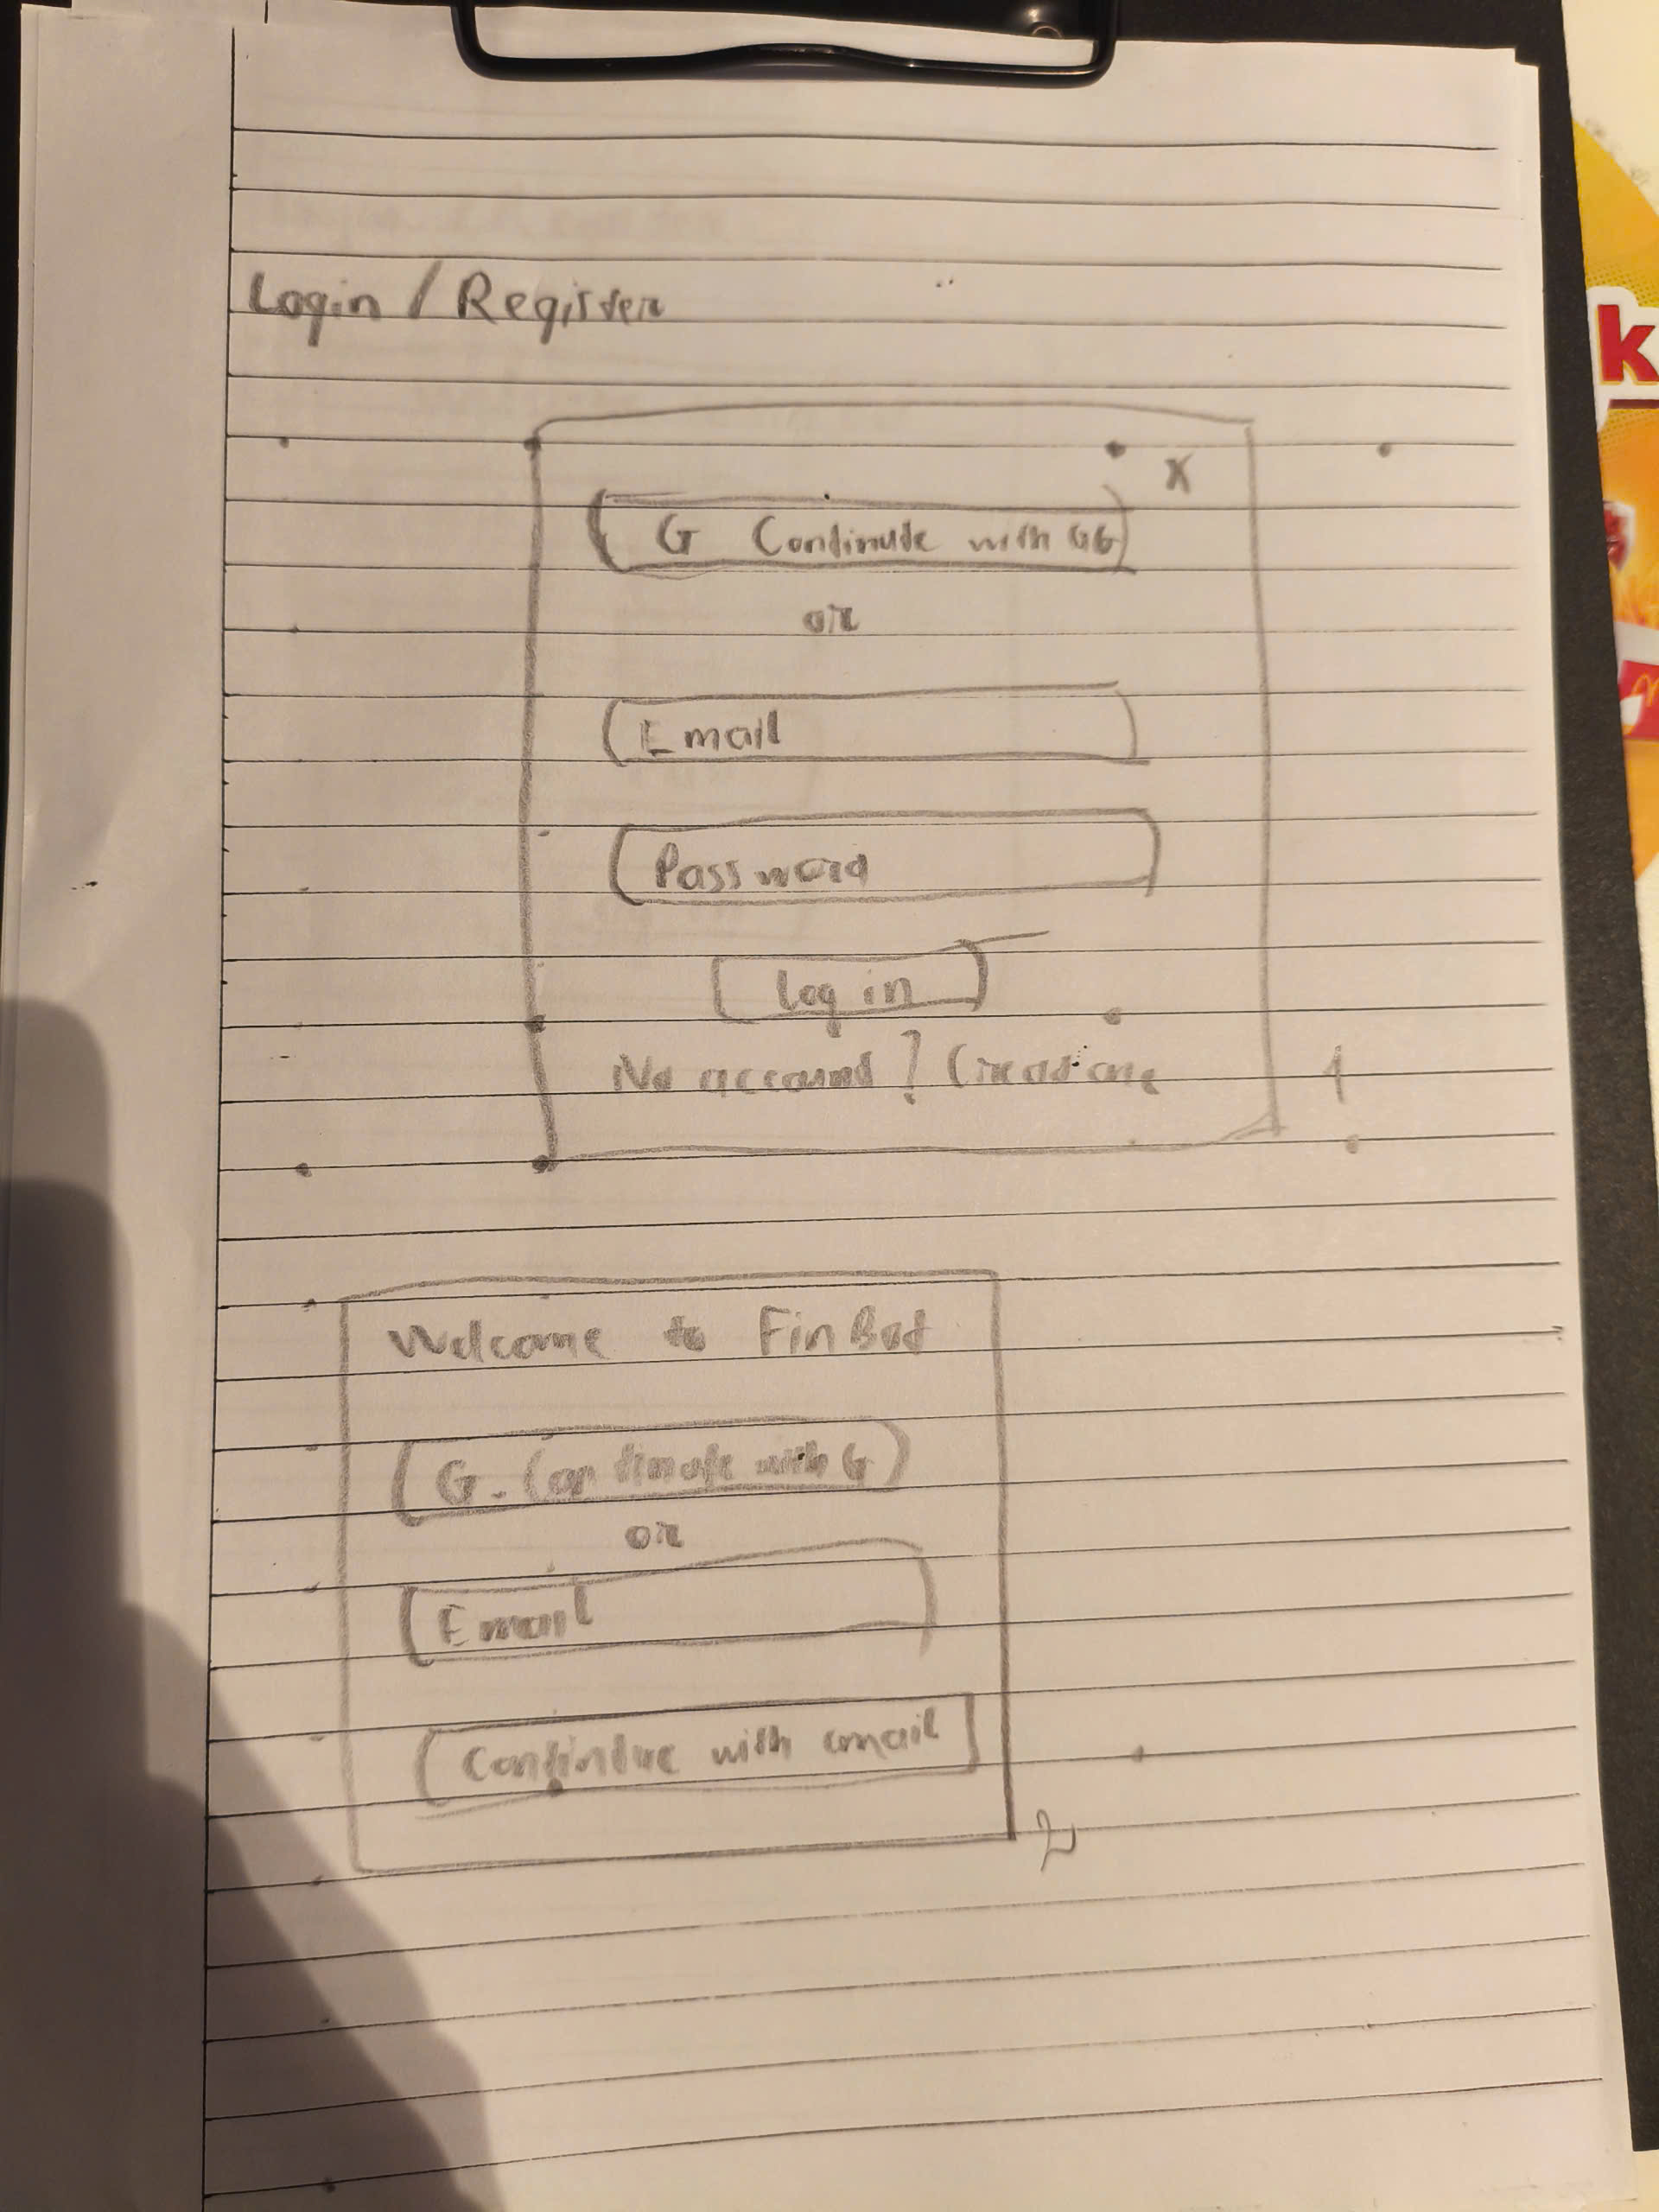 Login / Register
X
G Continute with GG
or
Email
Password
Log in
No account? Creat one
1
Welcome to FinBot
G. Continute with G
or
Email
Continue with email
2
k